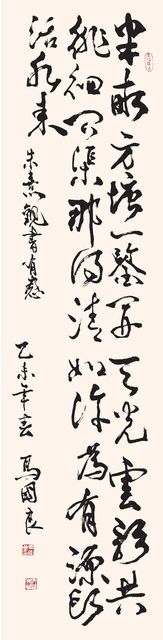 半畝方塘一鑒開天光雲影共
徘徊問渠那得清如許為有源頭
活水來 朱熹觀書有感 乙未年春 馬國良